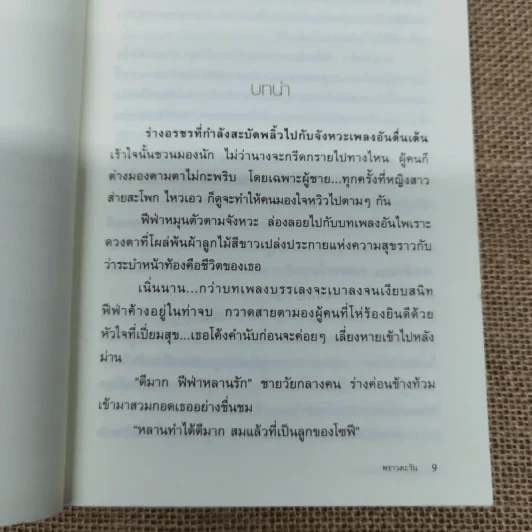 บทนำ
ร่างอรชรที่กำลังสะบัดพลิ้วไปกับจังหวะเพลงอันตื่นเต้น
เร้าใจนั้นชวนมองนัก ไม่ว่านางจะกรีดกรายไปทางไหน ผู้คนก็
ต่างมองตามตาไม่กะพริบ โดยเฉพาะผู้ชาย...ทุกครั้งที่หญิงสาว
ส่ายสะโพก ไหวเอว ก็ดูจะทำให้คนมองใจหวิวไปตามๆ กัน
ฟีฟ่าหมุนตัวตามจังหวะ ล่องลอยไปกับบทเพลงอันไพเราะ
ดวงตาที่โผล่พ้นผ้าลูกไม้สีขาวเปล่งประกายแห่งความสุขราวกับ
ว่าระบำหน้าท้องคือชีวิตของเธอ
เนิ่นนาน...กว่าบทเพลงบรรเลงจะเบาลงจนเงียบสนิท
ฟีฟ่าค้างอยู่ในท่าจบ กวาดสายตามองผู้คนที่โห่ร้องยินดีด้วย
หัวใจที่เปี่ยมสุข...เธอโค้งคำนับก่อนจะค่อยๆ เลี่ยงหายเข้าไปหลัง
ม่าน
"ดีมาก ฟีฟ่าหลานรัก" ชายวัยกลางคน ร่างค่อนข้างท้วม
เข้ามาสวมกอดเธออย่างชื่นชม
"หลานทำได้ดีมาก สมแล้วที่เป็นลูกของโซฟี"
พราวตะวัน 9